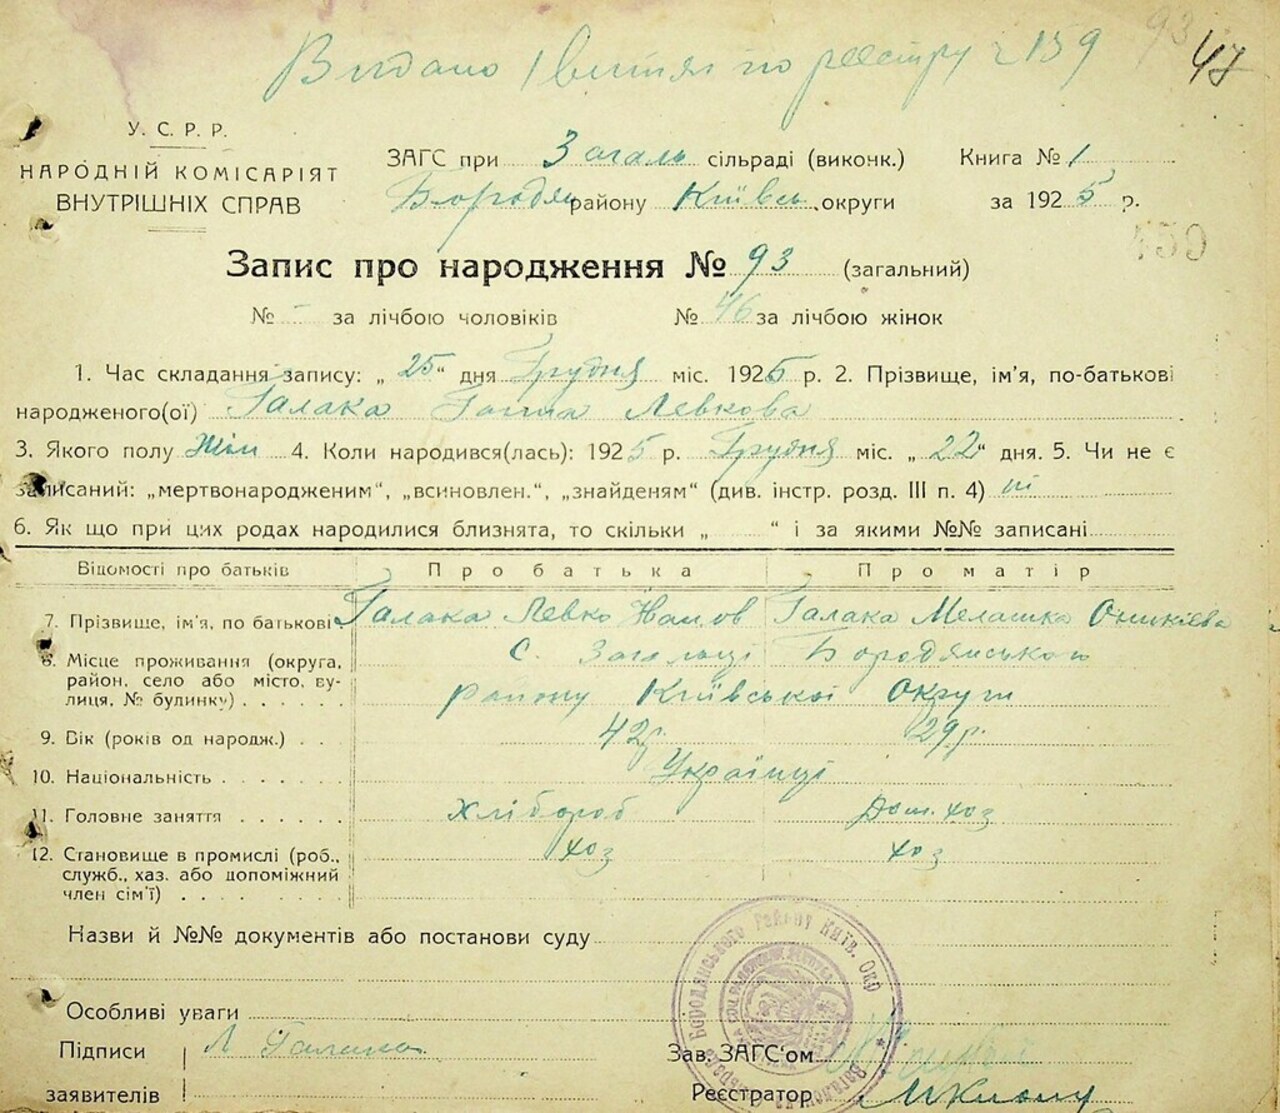 Видано 1 витяг по реєстру ч 159 93 47
У. С. Р. Р.
НАРОДНІЙ КОМІСАРІЯТ
ВНУТРІШНІХ СПРАВ
ЗАГС при Загаль сільраді (виконк.) Книга № 1
Бородян району Київсь округи за 1925 р.
Запис про народження № 93 (загальний)
№ - за лічбою чоловіків № 46 за лічбою жінок
1. Час складання запису: „25“ дня Грудня міс. 1925 р. 2. Прізвище, ім'я, по-батькові
народженого(ої) Галака Ганна Левкова
3. Якого полу Жін 4. Коли народився(лась): 1925 р. Грудня міс. „22“ дня. 5. Чи не є
записаний: „мертвонародженим“, „всиновлен.“, „знайденям“ (див. інстр. розд. III п. 4) ні
6. Як що при цих родах народилися близнята, то скільки „ “ і за якими №№ записані
Відомості про батьків Про батька Про матір
7. Прізвище, ім'я, по батькові Галака Левко Галака Мелашка Оникієва
8. Місце проживання (округа, с. Загальці Бородянського
район, село або місто, ву-
лиця, № будинку) району Київської Округи
9. Вік (років од народж.) 42 р. 29 р.
10. Національність Українці
11. Головне заняття Хлібороб Дом. хоз
12. Становище в промислі (роб., хоз хоз
служб., хаз. або допоміжний
член сім'ї)
Назви й №№ документів або постанови суду
Особливі уваги
Підписи Л Галака Зав. ЗАГС'ом
заявителів Реєстратор
Бородянського Району Київ. Окр